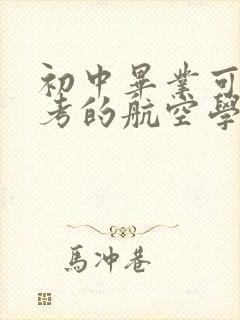 初中畢業可
考的航空學
馬冲巷